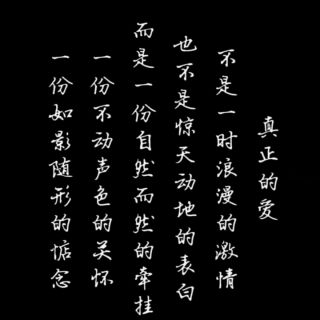 真正的爱
不是一时浪漫的激情
也不是惊天动地的表白
而是一份自然而然的牵挂
一份不动声色的关怀
一份如影随形的惦念